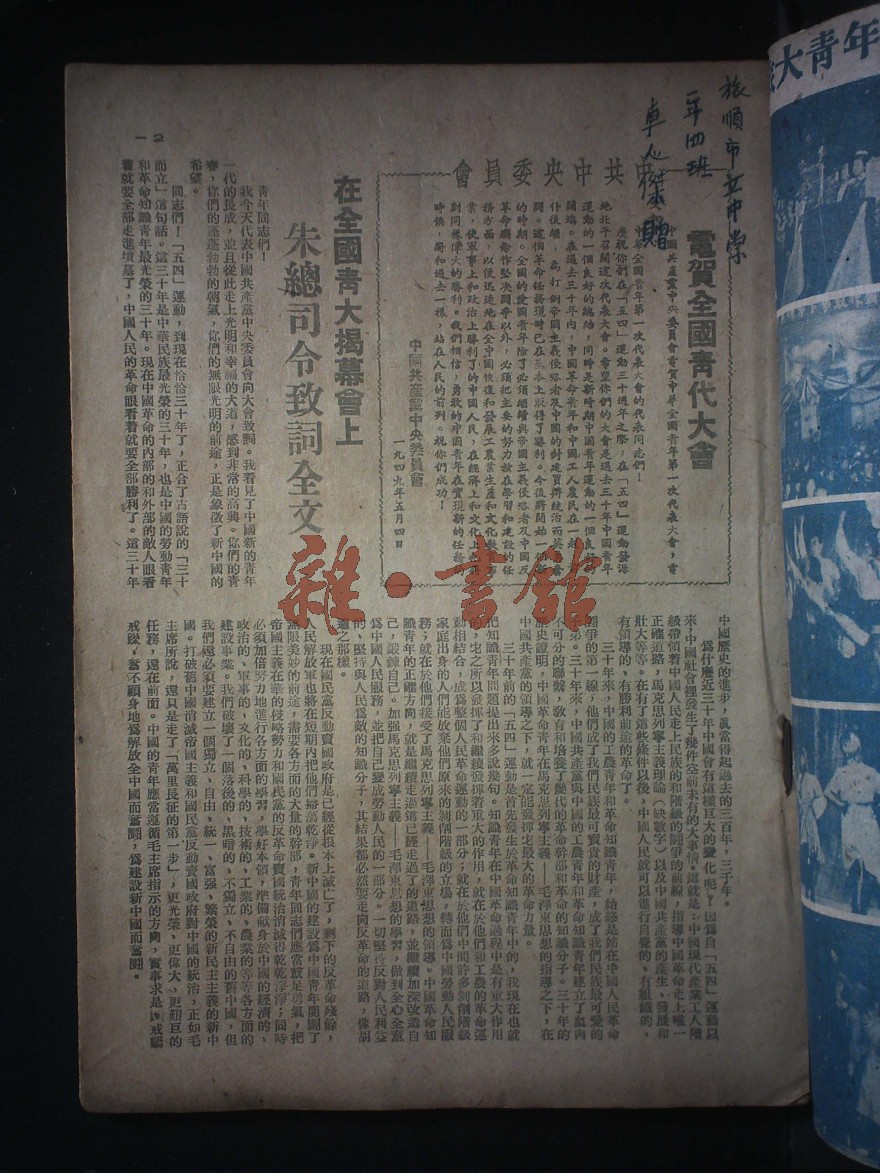 旅大青年
旅順市立中學
一年四班
卓人傑贈
一2
中共中央委員會
電賀全國青代大會
中國共產黨中央委員會電賀中華全國青年第一次代表大會，電
中華全國青年第一次代表大會的代表同志們！
慶祝你們在「五四」運動三十週年之際，在「五四」運動發源
地北平召開這次代表大會。希望你們的大會是過去三十年中國青年
運動的一個良好的總結，同時是新時期中國青年運動的一個良好的
開端。在過去三十年內，中國革命青年和中國工人農民在一起
仆後繼，為打倒帝國主義侵略者及中國的封建買辦統治而英勇奮
鬪。這個革命任務現時已在基本上取得了勝利。今後將開始一個新
的時期。全國的愛國青年除了必須繼續與帝國主義侵略者及中國反
革命殘餘作堅決鬪爭以外，必須把主要的努力放在學習和建設的任
務方面，以便迅速地在全中國恢復和發展工農業生產和文化教育事
業，使軍事上和政治上勝利了的中國人民，在經濟上和文化上也得
到同樣偉大的勝利。我們相信，勇敢的中國青年在實現新的任務的
時候，將和過去一樣，站在人民的前列。祝你們成功！
中國共產黨中央委員會
一九四九年五月四日
在全國青大揭幕會上
朱總司令致詞全文
青年同志們！
我今天代表中國共產黨中央委員會向大會致詞。我看見了中國新的青年
一代的長成，並且從此走上光明和幸福的大道，感到非常的高興。你們的青
春，你們的蓬蓬勃勃的朝氣，你們的無限光明的前途，正是象徵了新中國的
希望。
同志們！「五四」運動，到現在恰恰三十年了，正合了古語說的「三十
而立」這句話。這三十年是中華民族最光榮的三十年，也是中國的勞動青年
和革命知識青年最光榮的三十年。現在中國革命的內部的和外部的敵人眼看
着就要全部走進墳墓了，中國人民的革命眼看着就要全部勝利了。這三十年
中國歷史的進步，眞當得起過去的三百年，三千年。
爲什麼近三十年中國會有這樣巨大的變化呢？因爲自「五四」運動以
來，中國社會裡發生了幾件空前未有的大事情，這就是：中國現代產業工人階
級帶領着中國人民走上民族的和階級的鬪爭的前線，指導中國革命走上唯一
正確道路，馬克思列寧主義理論（缺數字）以及中國共產黨的產生、發展和
壯大等等。在有了這些條件以後，中國人民就可以進行自覺的、有組織的、
有領導的、有勝利前途的革命了。
三十年來，中國的工農青年和革命知識青年，始終是站在中國人民革命
鬪爭的第一線，他們成了我們民族最可寶貴的財產，成了我們民族最可愛的
子弟。三十年來，中國共產黨與中國的工農青年和革命知識青年建立了血肉
不可分的聯繫，敎育和培養了幾代的革命幹部和革命的知識分子。三十年的
歷史證明，中國革命青年在馬克思列寧主義——毛澤東思想的指導之下，在
中國共產黨的領導之下，就一定能發揮宅最大的革命力量。
三十年前的「五四」運動是首先發生於革命知識青年中的，我現在也就
把知識青年問題提出來多說幾句。知識青年在中國革命過程中是有重大作用
的，宅之所以發揮了和繼續發揮着重大的作用，就在於他們和工農的革命運
動相結合，成爲整個人民革命運動的一部分；就在於他們中間許多剝削階級
家庭出身的人們能放棄他們原來的剝削階級的立場，轉而爲中國勞動人民服
務；就在於他們接受了馬克思列寧主義——毛澤東思想的領導。中國革命知
識青年的正確方向，就是繼續走過這已經走過了的道路，並繼續加深改造自
己，鍛鍊自己。加強馬克思列寧主義——毛澤東思想的學習，做到全心全意
爲中國人民服務，並把自己變成勞動人民的一部分。一切堅持反對人民利益
的、堅持與人民爲敵的知識分子，其結果都必然要走向反革命的道路，像胡
適之那樣。
現在國民黨反動賣國政府是已經從根本上滅亡了，剩下的反革命殘餘，
人民解放軍也將在短期內把他們掃蕩乾淨。新中國的建設爲中國青年開闢了
無限美妙的前途，需要各方面的大量的幹部，青年同志們應當鼓足勇氣，把
帝國主義在華的侵略勢力和國民黨的反革命賣國統治消滅得乾乾淨淨；同時
必須加倍努力地進行各方面的學習，學好本領，準備獻身於中國的經濟的、
政治的、軍事的、文化的、科學的、技術的、工業的、農業的等等各方面的
建設事業。我們破壞了一個落後的、黑暗的、不獨立、不自由的舊中國，但
我們還必須要建立一個獨立、自由、統一、富强、繁榮的新民主主義的新中
國。打破舊中國消滅帝國主義和國民黨反動賣國政府對中國的統治，正如毛
主席所說，還只是走了「萬里長征的第一步」，更光榮、更偉大、更艱巨的
任務，還在前面。中國的青年應當遵循毛主席指示的方向，實事求是，戒驕
戒躁，奮不顧身地爲解放全中國而奮鬪，爲建設新中國而奮鬪。
雜·書館